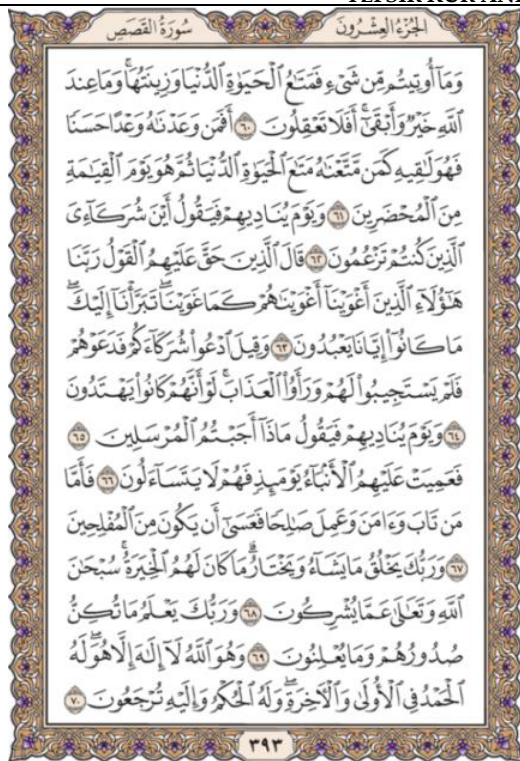 سُورَةُ القَصَصِ
الجُزْءُ العِشْرُونَ
وَمَآ أُوتِيتُم مِّن شَىْءٍ فَمَتَٰعُ ٱلْحَيَوٰةِ ٱلدُّنْيَا وَزِينَتُهَا ۚ وَمَا عِندَ
ٱللَّهِ خَيْرٌ وَأَبْقَىٰٓ ۚ أَفَلَا تَعْقِلُونَ ٦٠ أَفَمَن وَعَدْنَٰهُ وَعْدًا حَسَنًا
فَهُوَ لَٰقِيهِ كَمَن مَّتَّعْنَٰهُ مَتَٰعَ ٱلْحَيَوٰةِ ٱلدُّنْيَا ثُمَّ هُوَ يَوْمَ ٱلْقِيَٰمَةِ
مِنَ ٱلْمُحْضَرِينَ ٦١ وَيَوْمَ يُنَادِيهِمْ فَيَقُولُ أَيْنَ شُرَكَآءِىَ
ٱلَّذِينَ كُنتُمْ تَزْعُمُونَ ٦٢ قَالَ ٱلَّذِينَ حَقَّ عَلَيْهِمُ ٱلْقَوْلُ رَبَّنَا
هَٰٓؤُلَآءِ ٱلَّذِينَ أَغْوَيْنَآ أَغْوَيْنَٰهُمْ كَمَا غَوَيْنَا ۖ تَبَرَّأْنَآ إِلَيْكَ ۖ
مَا كَانُوٓا۟ إِيَّانَا يَعْبُدُونَ ٦٣ وَقِيلَ ٱدْعُوا۟ شُرَكَآءَكُمْ فَدَعَوْهُمْ
فَلَمْ يَسْتَجِيبُوا۟ لَهُمْ وَرَأَوُا۟ ٱلْعَذَابَ ۚ لَوْ أَنَّهُمْ كَانُوا۟ يَهْتَدُونَ
٦٤ وَيَوْمَ يُنَادِيهِمْ فَيَقُولُ مَاذَآ أَجَبْتُمُ ٱلْمُرْسَلِينَ ٦٥
فَعَمِيَتْ عَلَيْهِمُ ٱلْأَنۢبَآءُ يَوْمَئِذٍ فَهُمْ لَا يَتَسَآءَلُونَ ٦٦ فَأَمَّا
مَن تَابَ وَءَامَنَ وَعَمِلَ صَٰلِحًا فَعَسَىٰٓ أَن يَكُونَ مِنَ ٱلْمُفْلِحِينَ
٦٧ وَرَبُّكَ يَخْلُقُ مَا يَشَآءُ وَيَخْتَارُ ۗ مَا كَانَ لَهُمُ ٱلْخِيَرَةُ ۚ سُبْحَٰنَ
ٱللَّهِ وَتَعَٰلَىٰ عَمَّا يُشْرِكُونَ ٦٨ وَرَبُّكَ يَعْلَمُ مَا تُكِنُّ
صُدُورُهُمْ وَمَا يُعْلِنُونَ ٦٩ وَهُوَ ٱللَّهُ لَآ إِلَٰهَ إِلَّا هُوَ ۖ لَهُ
ٱلْحَمْدُ فِى ٱلْأُولَىٰ وَٱلْءَاخِرَةِ ۖ وَلَهُ ٱلْحُكْمُ وَإِلَيْهِ تُرْجَعُونَ ٧٠
٣٩٣